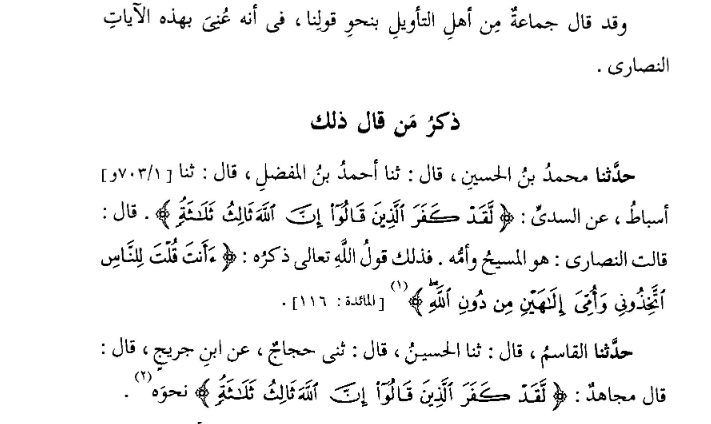 وقد قال جماعةٌ مِن أهلِ التأويلِ بنحوِ قولِنا ، فى أنه عُنِىَ بهذه الآياتِ
النصارى .
ذكرُ مَن قال ذلك
حدَّثنا محمدُ بنُ الحسينِ ، قال : ثنا أحمدُ بنُ المفضلِ ، قال : ثنا [ ٧٠٣/١و ]
أسباطُ ، عن السدىِّ : ﴿ لَّقَدْ كَفَرَ ٱلَّذِينَ قَالُوٓا۟ إِنَّ ٱللَّهَ ثَالِثُ ثَلَـٰثَةٍۘ ﴾ . قال :
قالت النصارى : هو المسيحُ وأمُّه . فذلك قولُ اللَّهِ تعالى ذكرُه : ﴿ ءَأَنتَ قُلْتَ لِلنَّاسِ
ٱتَّخِذُونِى وَأُمِّىَ إِلَـٰهَيْنِ مِن دُونِ ٱللَّهِۖ ﴾ (١) [ المائدة : ١١٦ ] .
حدَّثنا القاسمُ ، قال : ثنا الحسينُ ، قال : ثنى حجاجٌ ، عن ابنِ جريجٍ ، قال :
قال مجاهدٌ : ﴿ لَّقَدْ كَفَرَ ٱلَّذِينَ قَالُوٓا۟ إِنَّ ٱللَّهَ ثَالِثُ ثَلَـٰثَةٍۘ ﴾ نحوَه (٢) .